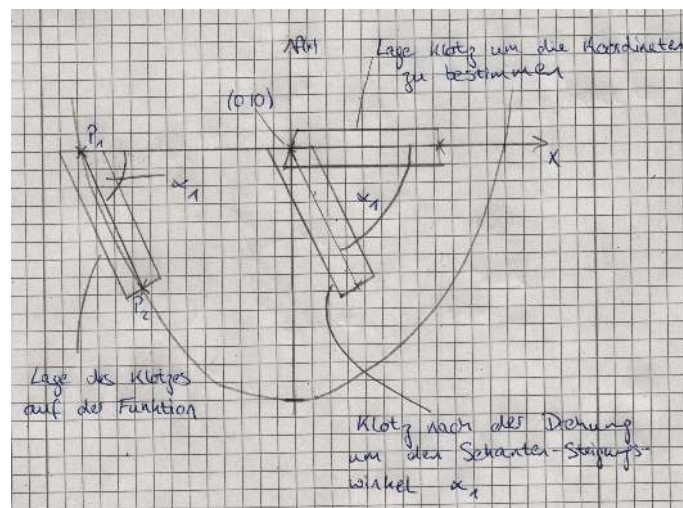 f(x)
Lage Klotz um die Koordinaten
zu bestimmen
(0|0)
P1
X
α1
α1
P2
Lage des Klotzes
auf der Funktion
Klotz nach der Drehung
um den Sekanten-Steigungs-
winkel α1